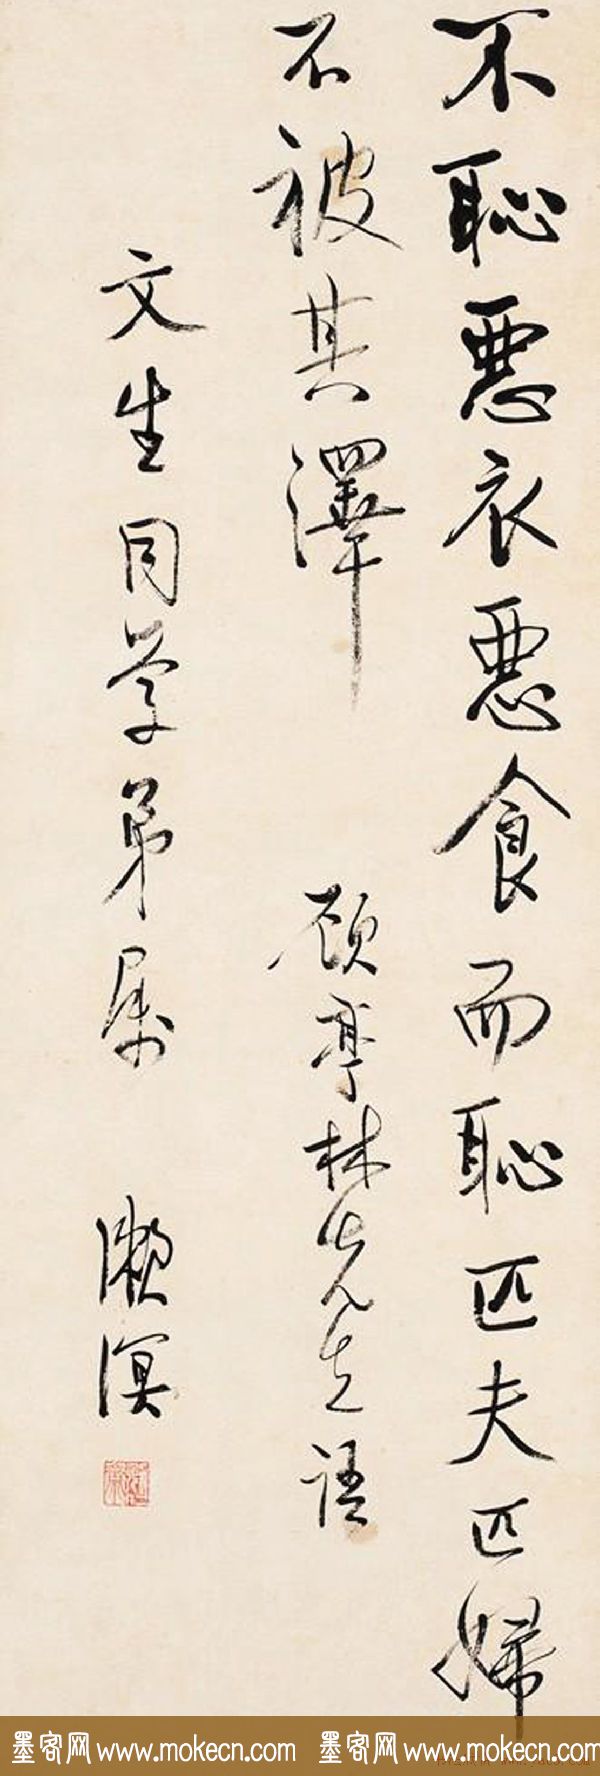 不恥惡衣惡食而恥匹夫匹婦
不被其澤
顾亭林先生语
文生同学弟属
漱溟
墨客网 www.mokecn.com 墨客网 www.mokecn.com